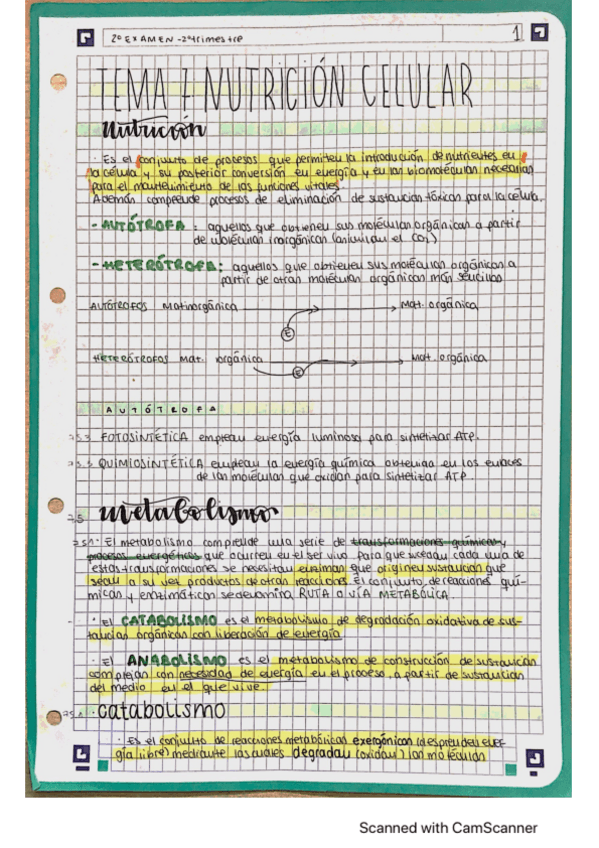 2º EXAMEN - 2º trimestre
1
TEMA 7 NUTRICIÓN CELULAR
Nutrición
· Es el conjunto de procesos que permiten la introducción de nutrientes en
la célula y su posterior conversión en energía y en las biomoléculas necesarias
para el mantenimiento de las funciones vitales.
Además comprende procesos de eliminación de sustancias tóxicas para la célula.
- AUTÓTROFA : aquellos que obtienen sus moléculas orgánicas a partir
de moléculas inorgánicas (asimilan el CO2)
- HETERÓTROFA: aquellos que obtienen sus moléculas orgánicas a
partir de otras moléculas orgánicas más sencillas
AUTÓTROFOS Mat inorgánica Mat. orgánica
E
HETERÓTROFOS Mat. orgánica Mat. orgánica
E
AUTÓTROFA
FOTOSINTÉTICA emplean energía luminosa para sintetizar ATP.
QUIMIOSINTÉTICA emplean la energía química obtenida en los enlaces
de las moléculas que oxidan para sintetizar ATP.
7.5
metabolismo
7.5.1 · El metabolismo comprende una serie de transformaciones químicas y
procesos energéticos que ocurren en el ser vivo. Para que sucedan cada una de
estas transformaciones se necesitan enzimas que originen sustancias que
sean a su vez productos de otras reacciones. El conjunto de reacciones quí-
micas y enzimáticas se denomina RUTA o VÍA METABÓLICA.
· El CATABOLISMO es el metabolismo de degradación oxidativa de sus-
tancias orgánicas con liberación de energía
· El ANABOLISMO es el metabolismo de construcción de sustancias
complejas con necesidad de energía en el proceso, a partir de sustancias
del medio en el que vive.
catabolismo
· Es el conjunto de reacciones metabólicas exergónicas (desprenden ener-
gía libre) mediante las cuales degradan (oxidan) las moléculas
Scanned with CamScanner